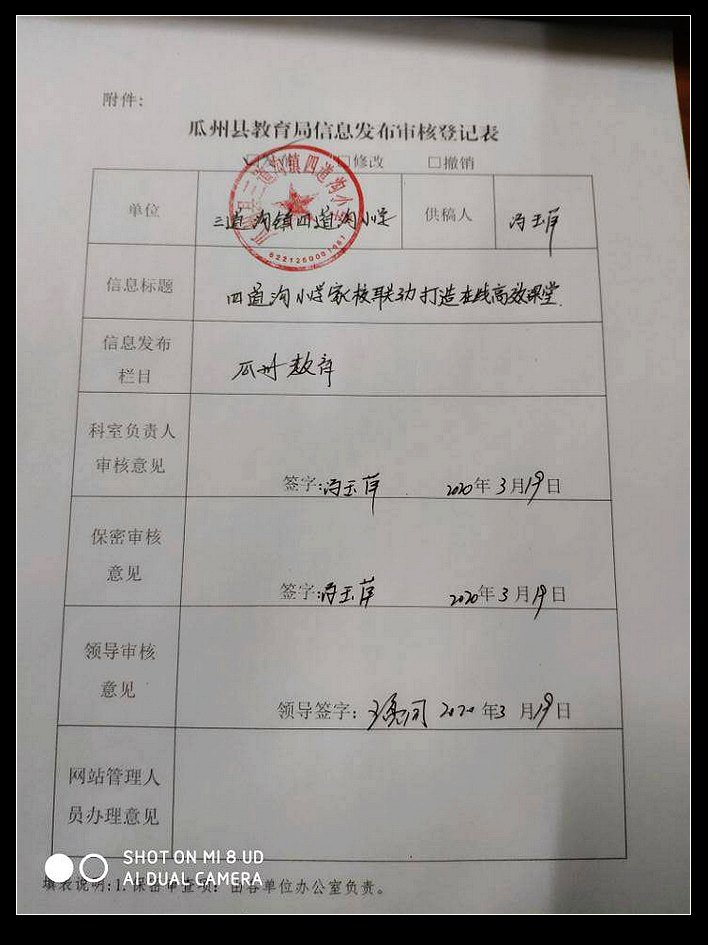 附件：
瓜州县教育局信息发布审核登记表
□修改 □撤销
单位 三道沟镇四道沟小学 供稿人 冯玉萍
信息标题 四道沟小学家校联动打造在线高效课堂
信息发布
栏目 瓜州教育
科室负责人
审核意见
签字:冯玉萍 2020年3月19日
保密审核
意见
签字:冯玉萍 2020年3月19日
领导审核
意见
领导签字: 2020年3月19日
网站管理人
员办理意见
填表说明:1.保密审查项：由各单位办公室负责。
SHOT ON MI 8 UD
AI DUAL CAMERA